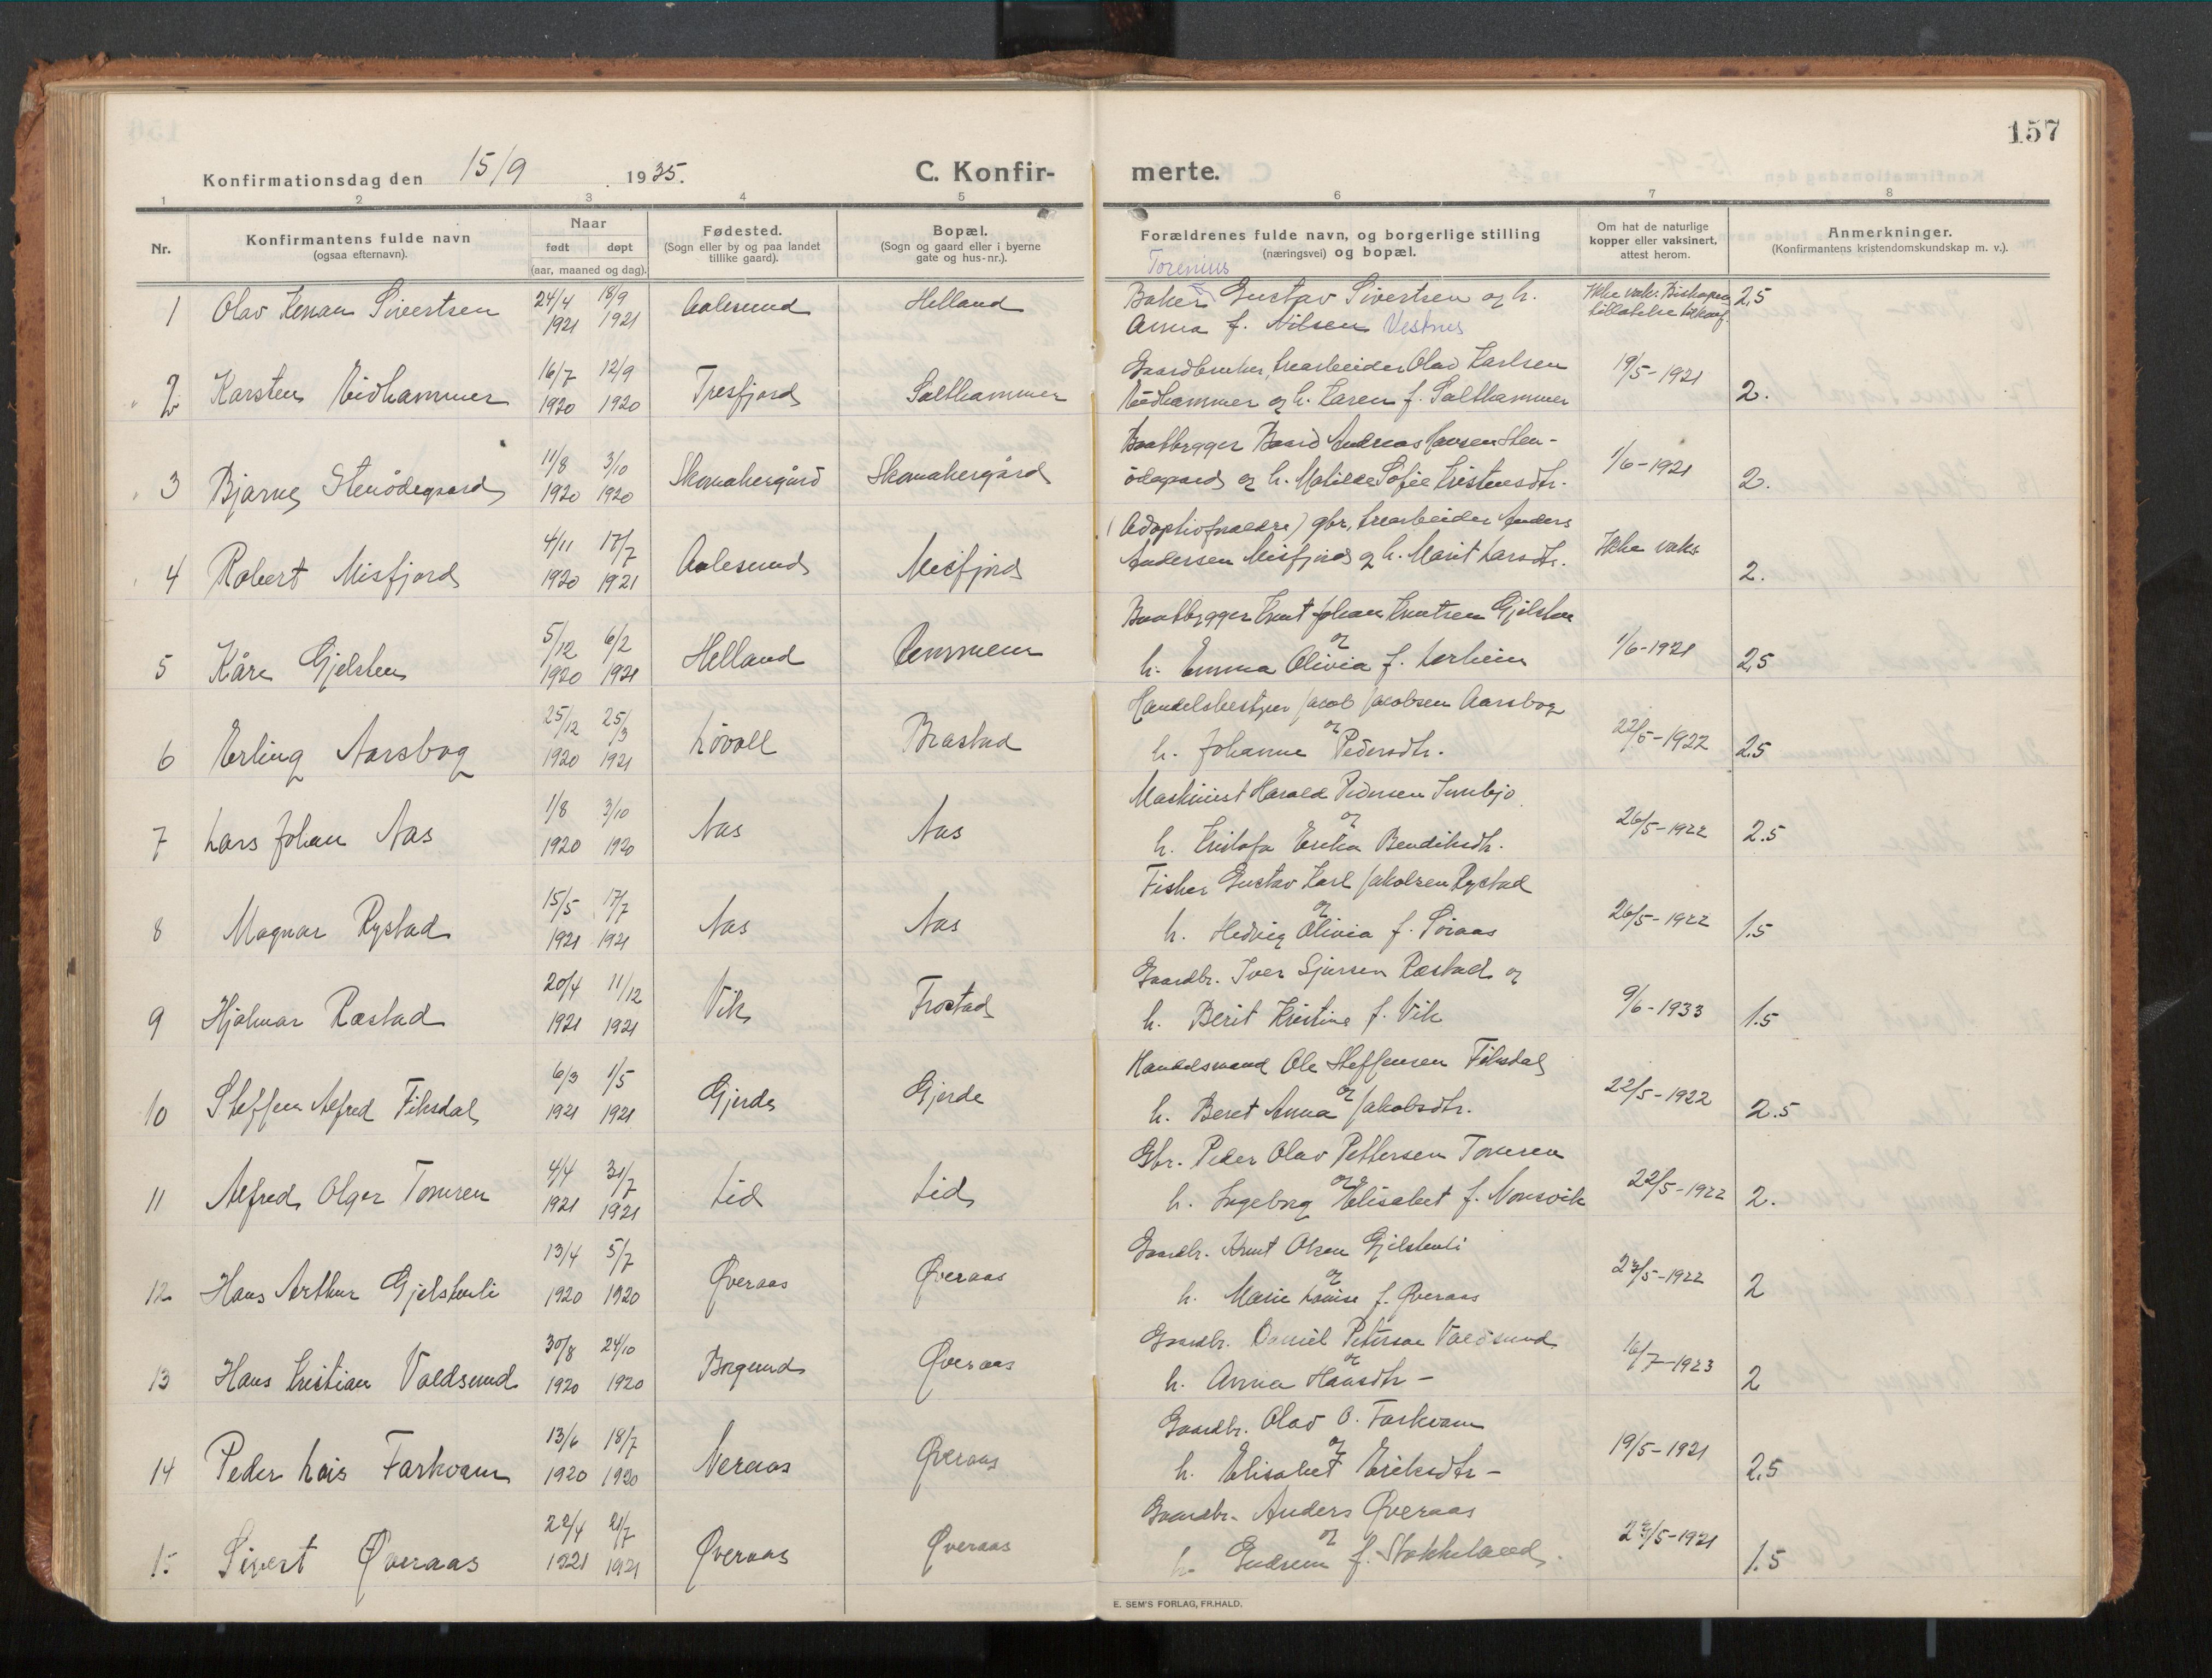 157
Konfirmationsdag den 15/9 1935.
C. Konfir-
merte.
1 2 3 4 5 6 7 8
Nr.
Konfirmantens fulde navn
(ogsaa efternavn).
Naar
født døpt
(aar, maaned og dag).
Fødested.
(Sogn eller by og paa landet
tillike gaard).
Bopæl.
(Sogn og gaard eller i byerne
gate og hus-nr.).
Forældrenes fulde navn, og borgerlige stilling
(næringsvei) og bopæl.
Om hat de naturlige
kopper eller vaksinert,
attest herom.
Anmerkninger.
(Konfirmantens kristendomskundskap m. v.).
Torenius
1 Olav Kenan Sivertsen 24/4 1921 18/9 1921 Aalesund Helland
Baker Gustav Sivertsen og h.
Anna f. Nilsen Vestnes
Ikke vaks. Biskopen
tillatelse 2,5
2 Karsten Eidhammer 16/7 1920 12/9 1920 Tresfjord Salthammer
Gaardbruker, trearbeider Olav Karlsen
Eidhammer og h. Karen f. Salthammer
19/5-1921 2.
3 Bjarne Stenødegaard 11/8 1920 3/10 1920 Skomakergård Skomakergård
Baatbygger Baard Andreas Hansen Sten-
ødegaard og h. Matilde Sofie Kristensdtr.
1/6-1921 2.
4 Robert Misfjord 4/11 1920 17/7 1921 Aalesund Misfjord
(Adoptivforældre) gbr, trearbeider Anders
Andersen Misfjord og h. Marit Larsdtr.
Ikke vaks 2.
5 Kåre Gjelsten 5/12 1920 6/2 1921 Helland Remmem
Baatbygger Knut Johan Knutsen Gjelsten
og
h. Emma Olivia f. Lerheim
1/6-1921 2,5
6 Erling Aarsbog 25/12 1920 25/3 1921 Løvoll Brastad
Handelsbestyrer Jacob Jacobsen Aarsbog
og
h. Johanne Pedersdtr.
22/5-1922 2.5
7 Lars Johan Aas 1/8 1920 3/10 1920 Aas Aas
Maskinist Harald Pedersen
og
h. Kristofa Erika Bendiksdtr.
26/5-1922 2.5
8 Magnar Rystad 15/5 1921 17/7 1921 Aas Aas
Fisker Gustav Karl Jakobsen Rystad
og
h. Hedvig Olivia f. Søraas
26/5-1922 1.5
9 Hjalmar Ræstad 20/4 1921 11/12 1921 Vik Frostad
Gaardbr. Iver Sjursen Ræstad og
h. Berit Kristine f. Vik
9/6-1933 1.5
10 Steffen Alfred Fiksdal 6/3 1921 1/5 1921 Gjerde Gjerde
Handelsmand Ole Steffensen Fiksdal
og
h. Beret Anna Jakobsdtr.
22/5-1922 2.5
11 Alfred Olger Tomren 4/4 1921 31/7 1921 Lid Lid
Gbr. Peder Olav Pettersen Tomren
og
h. Ingeborg Elisabet f. Monsvik
22/5-1922 2.
12 Hans Arthur Gjelstenli 13/4 1920 5/7 1920 Øveraas Øveraas
Gaardbr. Knut Olsen Gjelstenli
og
h. Marie Louise f. Øveraas
5-1922 2
13 Hans Kristian Valdsund 30/8 1920 24/10 1920 Borgund Øveraas
Gaardbr. Daniel Peterson Valdsund
og
h. Anna Hansdtr -
16/7-1923 2
14 Peder Lois Farkvam 13/6 1920 18/7 1920 Neraas Øveraas
Gaardbr. Olav O. Farkvam
og
h. Elisabet Eriksdtr -
19/5-1921 2.5
15 Sivert Øveraas 22/4 1921 21/7 1921 Øveraas Øveraas
Gaardbr. Anders Øveraas
og
h. Gudrun f. Stokkeland.
5-1921 1.5
E. SEM'S FORLAG, FR.HALD.